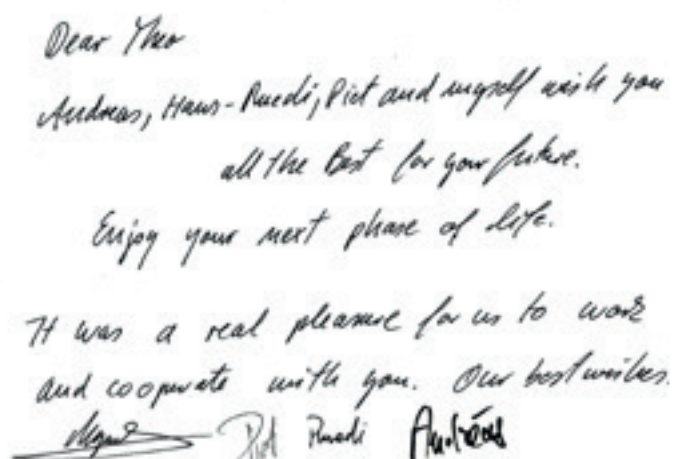 Dear Theo
Andreas, Hans-Ruedi, Piet and myself wish you
all the Best for your future.
Enjoy your next phase of life.
It was a real pleasure for us to work
and cooperate with you. Our best wishes.
Piet Ruedi Andréas